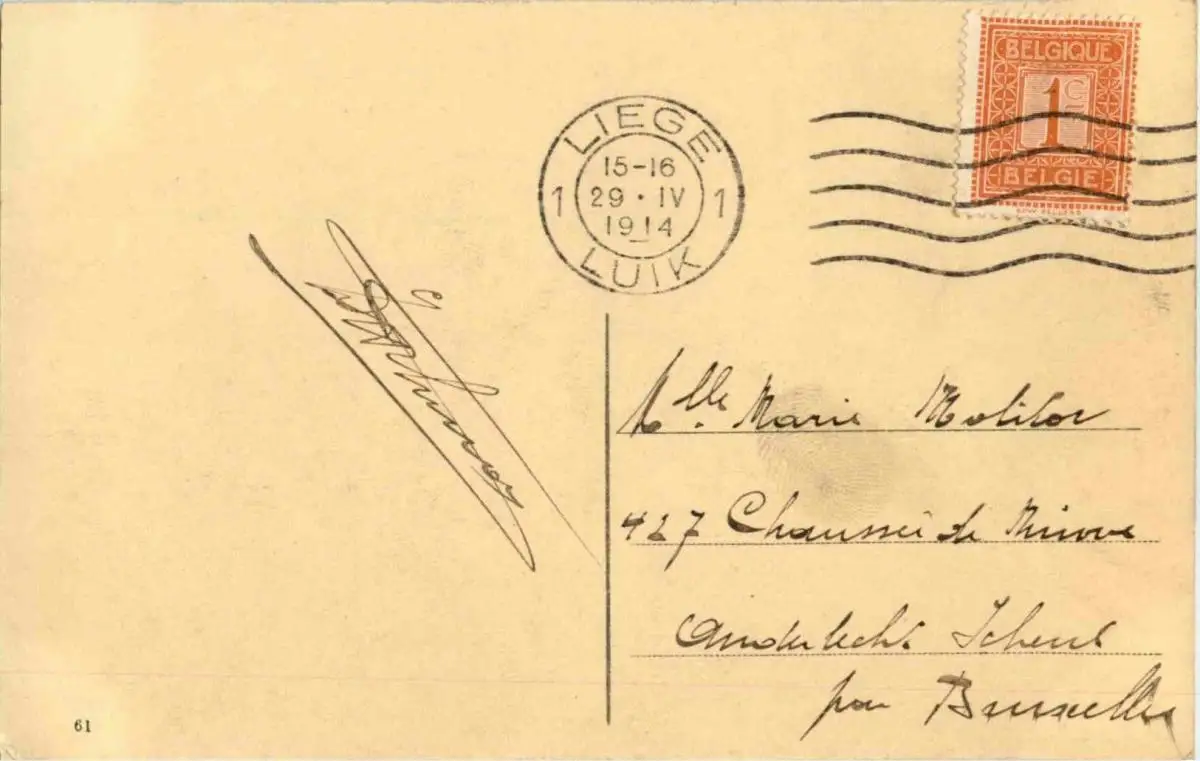 BELGIQUE
1 C
BELGIE
LIEGE
15-16
1 29 · IV 1
1914
LUIK
Mlle. Marie Molitor
427 Chaussée de Ninove
Anderlecht Scheut
par Bruxelles
61